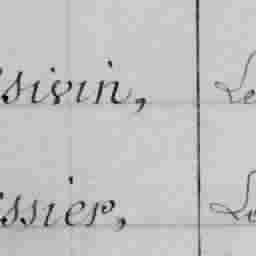 sivin, Le
ssier, Le